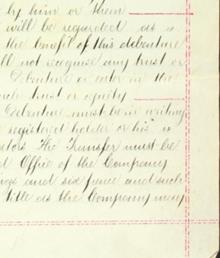 by him or them
will be regarded as a
the benefit of this debenture
ll not recognise any trust or
Debenture or enter in the
such trust or equity
Debenture must be in writing
registered holder or his
ators The Transfer must be
Office of the Company
ings and six pence and such
Title as the Company may